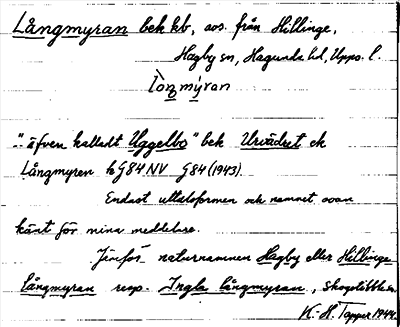 Långmyran bek kb, avs. från Hillinge,
Hagby sn, Hagunda hd, Upps. l.
lòŋmýran
"- äfven kalladt Uggelbo" bek Urvädret ek
Långmyren fr G84 NV G84 (1943).
Endast uttalsformen och namnet ovan
känt för mina meddelare.
Jämför naturnamnen Hagby eller Hillinge
långmyran resp. Ingla långmyran, Skogstibble sn.
K.-H. Tapper 1944.